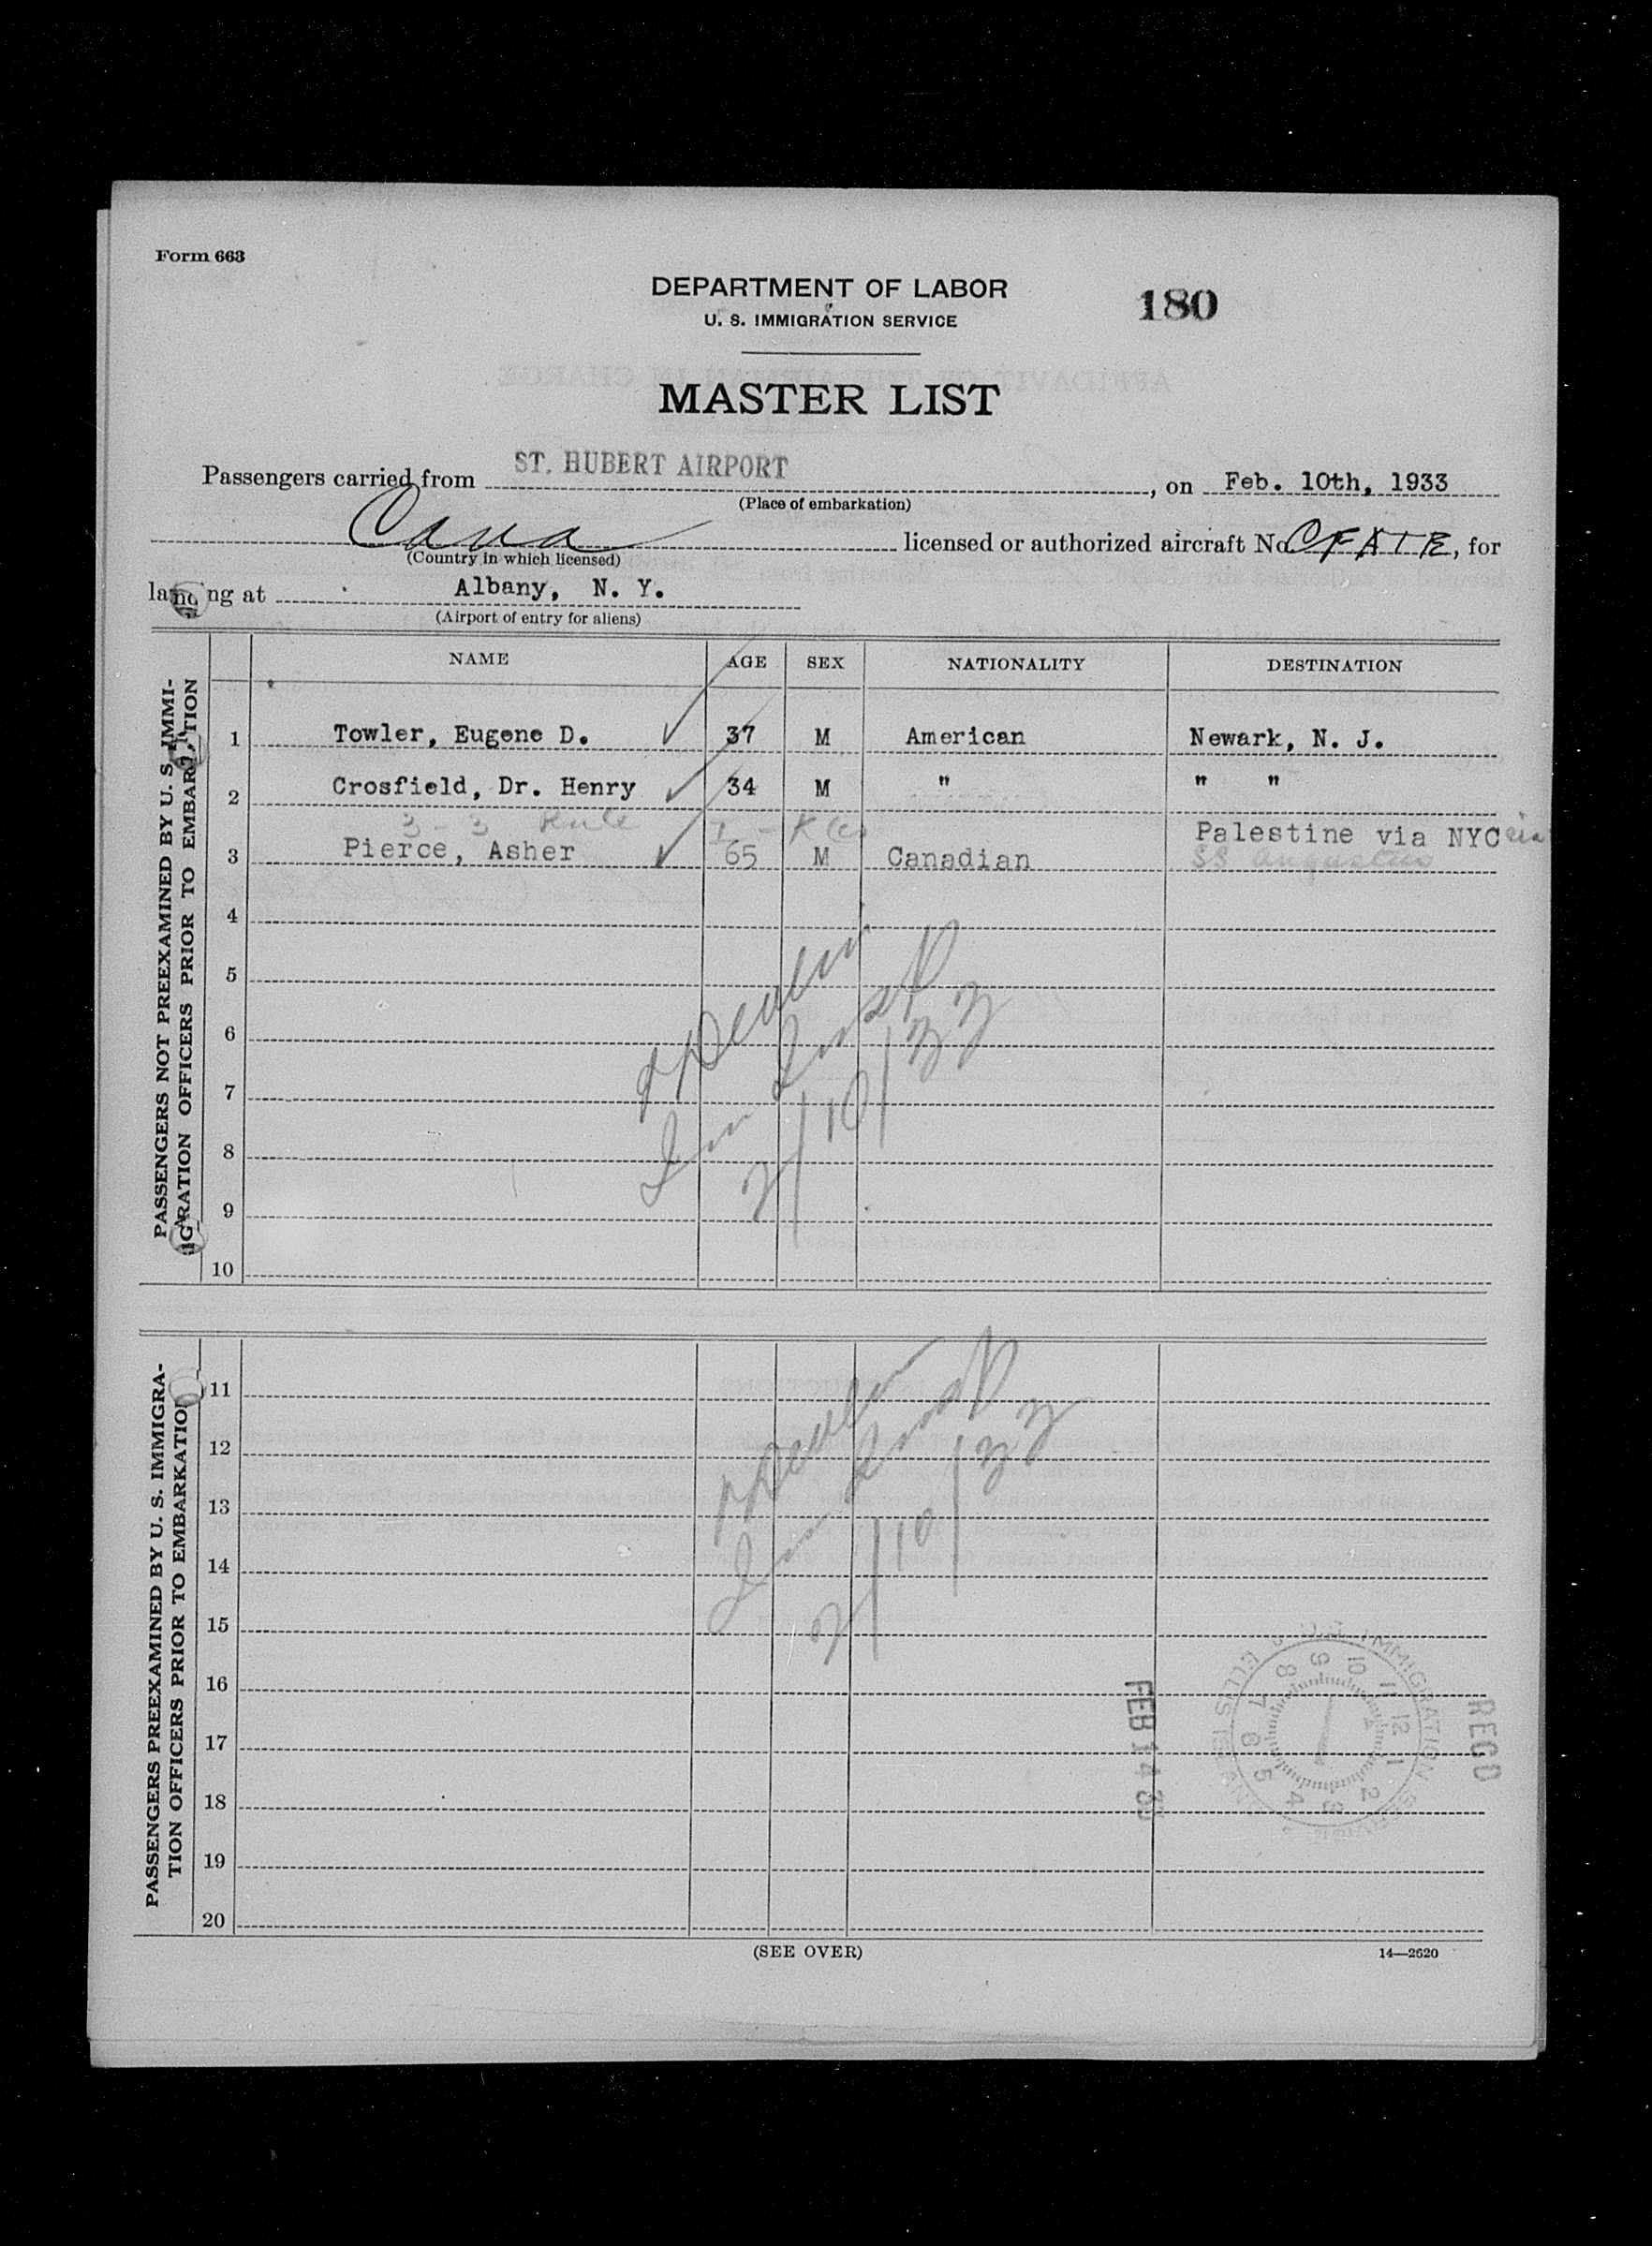 Form 663
DEPARTMENT OF LABOR
U. S. IMMIGRATION SERVICE
180
MASTER LIST
Passengers carried from ST. HUBERT AIRPORT, on Feb. 10th, 1933
(Place of embarkation)
Cana licensed or authorized aircraft No. CFATR, for
(Country in which licensed)
landing at Albany, N. Y.
(Airport of entry for aliens)
PASSENGERS NOT PREEXAMINED BY U. S. IMMI-
GRATION OFFICERS PRIOR TO EMBARKATION
NAME AGE SEX NATIONALITY DESTINATION
1 Towler, Eugene D. 37 M American Newark, N. J.
2 Crosfield, Dr. Henry 34 M " " "
3 - 3
Palestine via NYC via
3 Pierce, Asher 65 M Canadian SS Augustus
4
5
6
7
8
9
10
Devlin
Imm Insp
2/10/33
PASSENGERS PREEXAMINED BY U. S. IMMIGRA-
TION OFFICERS PRIOR TO EMBARKATION
11
12
13
14
15
16
17
18
19
20
Devlin
Imm Insp
2/10/33
FEB 14 33
U.S. IMMIGRATION SERVICE
ELLIS ISLAND
1 2 3 4 5 6 7 8 9 10 11 12
REC'D
(SEE OVER)
14—2620